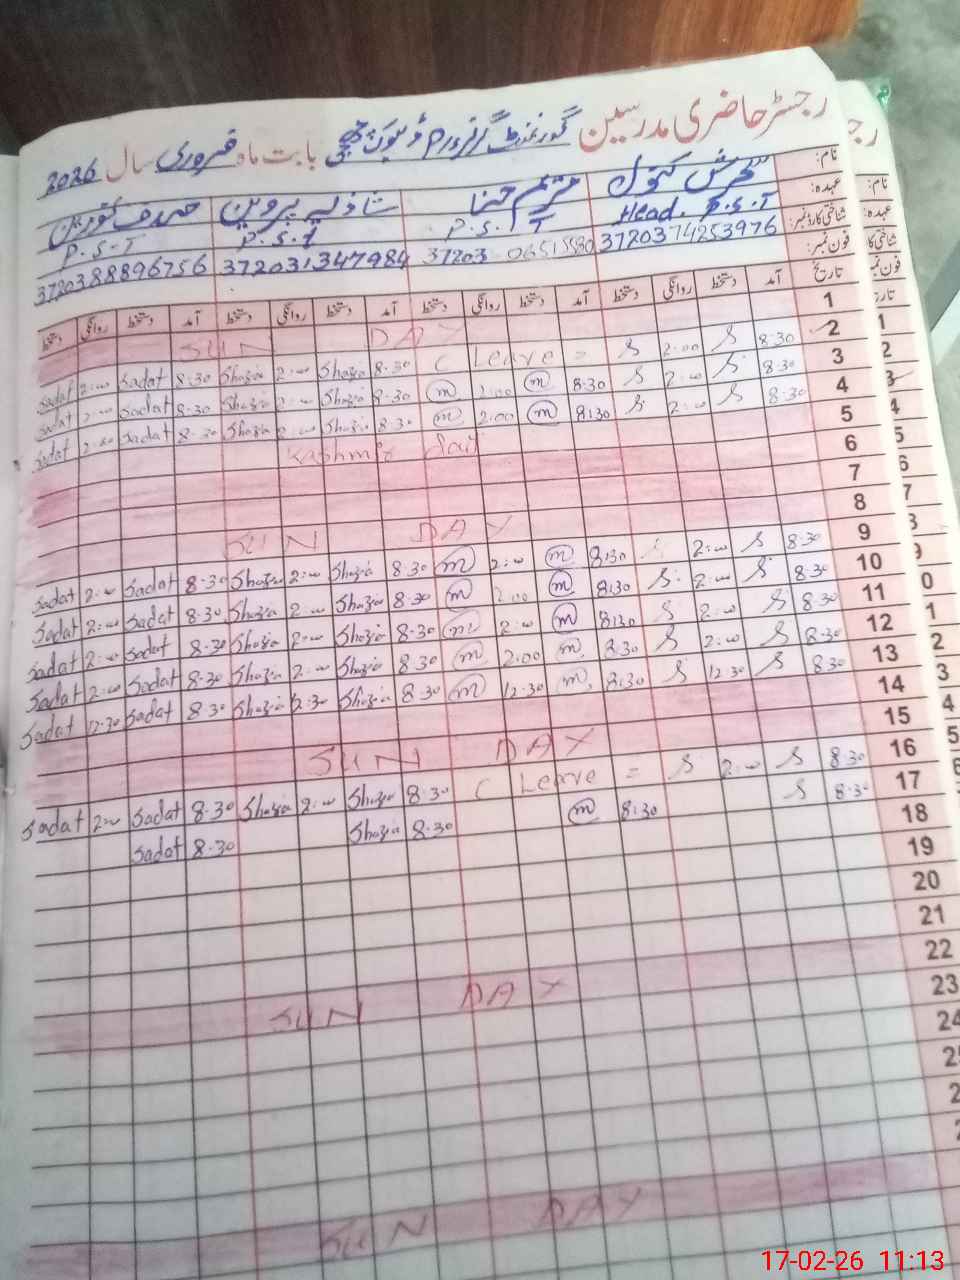 رجسٹر حاضری مدرسین گورنمنٹ گرلز بابت ماہ فروری سال 2026
نام: سحرش کنول مریم حنا شازیہ پروین صدف نورین
عہدہ: Head. P.S.T P.S.T P.S.T P.S.T
شناختی کارڈ نمبر: 3720374253976 37203 06515580 372031347984 3720388896756
فون نمبر:
تاریخ آمد دستخط روانگی دستخط آمد دستخط روانگی دستخط آمد دستخط روانگی دستخط آمد دستخط روانگی دستخط
1 SUN DAY
2 8:30 S 2:00 S C Leave = 8:30 Shazia 2:00 Shazia 8:30 Sadat 2:00 Sadat
3 8:30 S 2:00 S 8:30 m 2:00 m 8:30 Shazia 2:00 Shazia 8:30 Sadat 2:00 Sadat
4 8:30 S 2:00 S 8:30 m 2:00 m 8:30 Shazia 2:00 Shazia 8:30 Sadat 2:00 Sadat
5 Kashmir day
6
7
8 SUN DAY
9 8:30 S 2:00 S 8:30 m 2:00 m 8:30 Shazia 2:00 Shazia 8:30 Sadat 2:00 Sadat
10 8:30 S 2:00 S 8:30 m 2:00 m 8:30 Shazia 2:00 Shazia 8:30 Sadat 2:00 Sadat
11 8:30 S 2:00 S 8:30 m 2:00 m 8:30 Shazia 2:00 Shazia 8:30 Sadat 2:00 Sadat
12 8:30 S 2:00 S 8:30 m 2:00 m 8:30 Shazia 2:00 Shazia 8:30 Sadat 2:00 Sadat
13 8:30 S 12:30 S 8:30 m 12:30 m 8:30 Shazia 12:30 Shazia 8:30 Sadat 12:30 Sadat
14
15 SUN DAY
16 8:30 S 2:00 S C Leave = 8:30 Shazia 2:00 Shazia 8:30 Sadat 2:00 Sadat
17 8:30 S 8:30 m 8:30 Shazia 8:30 Sadat
18
19
20
21
22 SUN DAY
23
24
SUN DAY
17-02-26 11:13